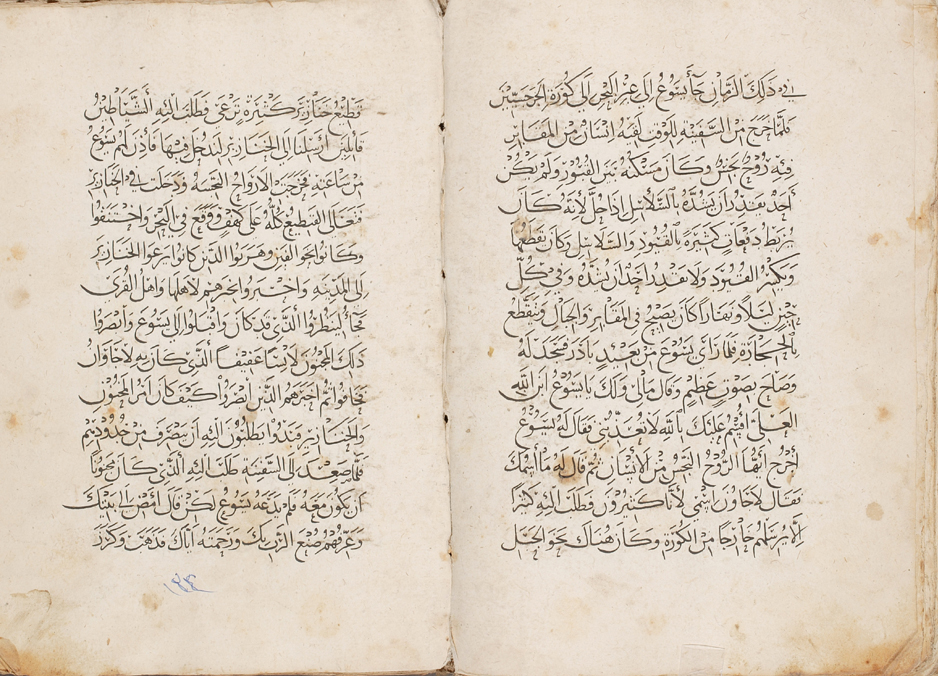 في ذلك الزمان جآ يسوع الى عبر البحر الى كورة الجرجسيين
فلما خرج من السفينه للوقت لقيه انسان من المقابر
فيه روح نجس وكان مسكنه بين القبور ولم يكن
أحد يقدر ان يشده بالسلاسل اذا حل لأنه كان
يربط دفعات كثيره بالقيود والسلاسل وكان يقطعها
ويكسر القيود ولا يقدر احد ان يشده وفي كل
حين ليلا ونهارا كان يصيح في المقابر والجبال ويتقطع
بالحجارة فلما رأى يسوع من بعيد بادر فسجد له
وصاح بصوت عظيم وقال مالي ولك يا يسوع ابن الله
العلي اقسم عليك بالله لا تعذبني فقال له يسوع
أخرج ايها الروح النجس من الانسان ثم قال له ما اسمك
فقال لاجاون اسمي لأنا كثيرون فطلب اليه كثيرا
لا يرسلهم خارجا من الكورة وكان هناك نحو الجبل
قطيع خنازير كثيرة ترعى فطلب اليه الشياطين
قايلين أرسلنا الى الخنازير لندخل فيها فأذن لهم يسوع
من ساعته فخرجت الارواح النجسه ودخلت في الخنازير
فتعالى القطيع كله على كهف ووقع في البحر واختنقوا
وكانوا نحو الفين وهربوا الذين كانوا يرعوا الخنازير
الى المدينه واخبروا بخبرهم لاهلها واهل القرى
فجآءُ لينظروا الذي قد كان واقبلوا الى يسوع وأبصروا
ذلك المجنون لابسًا عفيفا الذي كان به لاجاوان
فخافوا ثم اخبرهم الذين ابصروا كيف كان امر المجنون
والخنازير فبدوا يطلبون اليه ان ينصرف من حدودهم
فلما صعد الى السفينة طلب اليه الذي كان مجنونا
ان يكون معه فلم يدعه يسوع لكن قال امض الى بيتك
وعرفهم صنع الرب بك ورحمته اياك فذهب وكرز
١٣٤